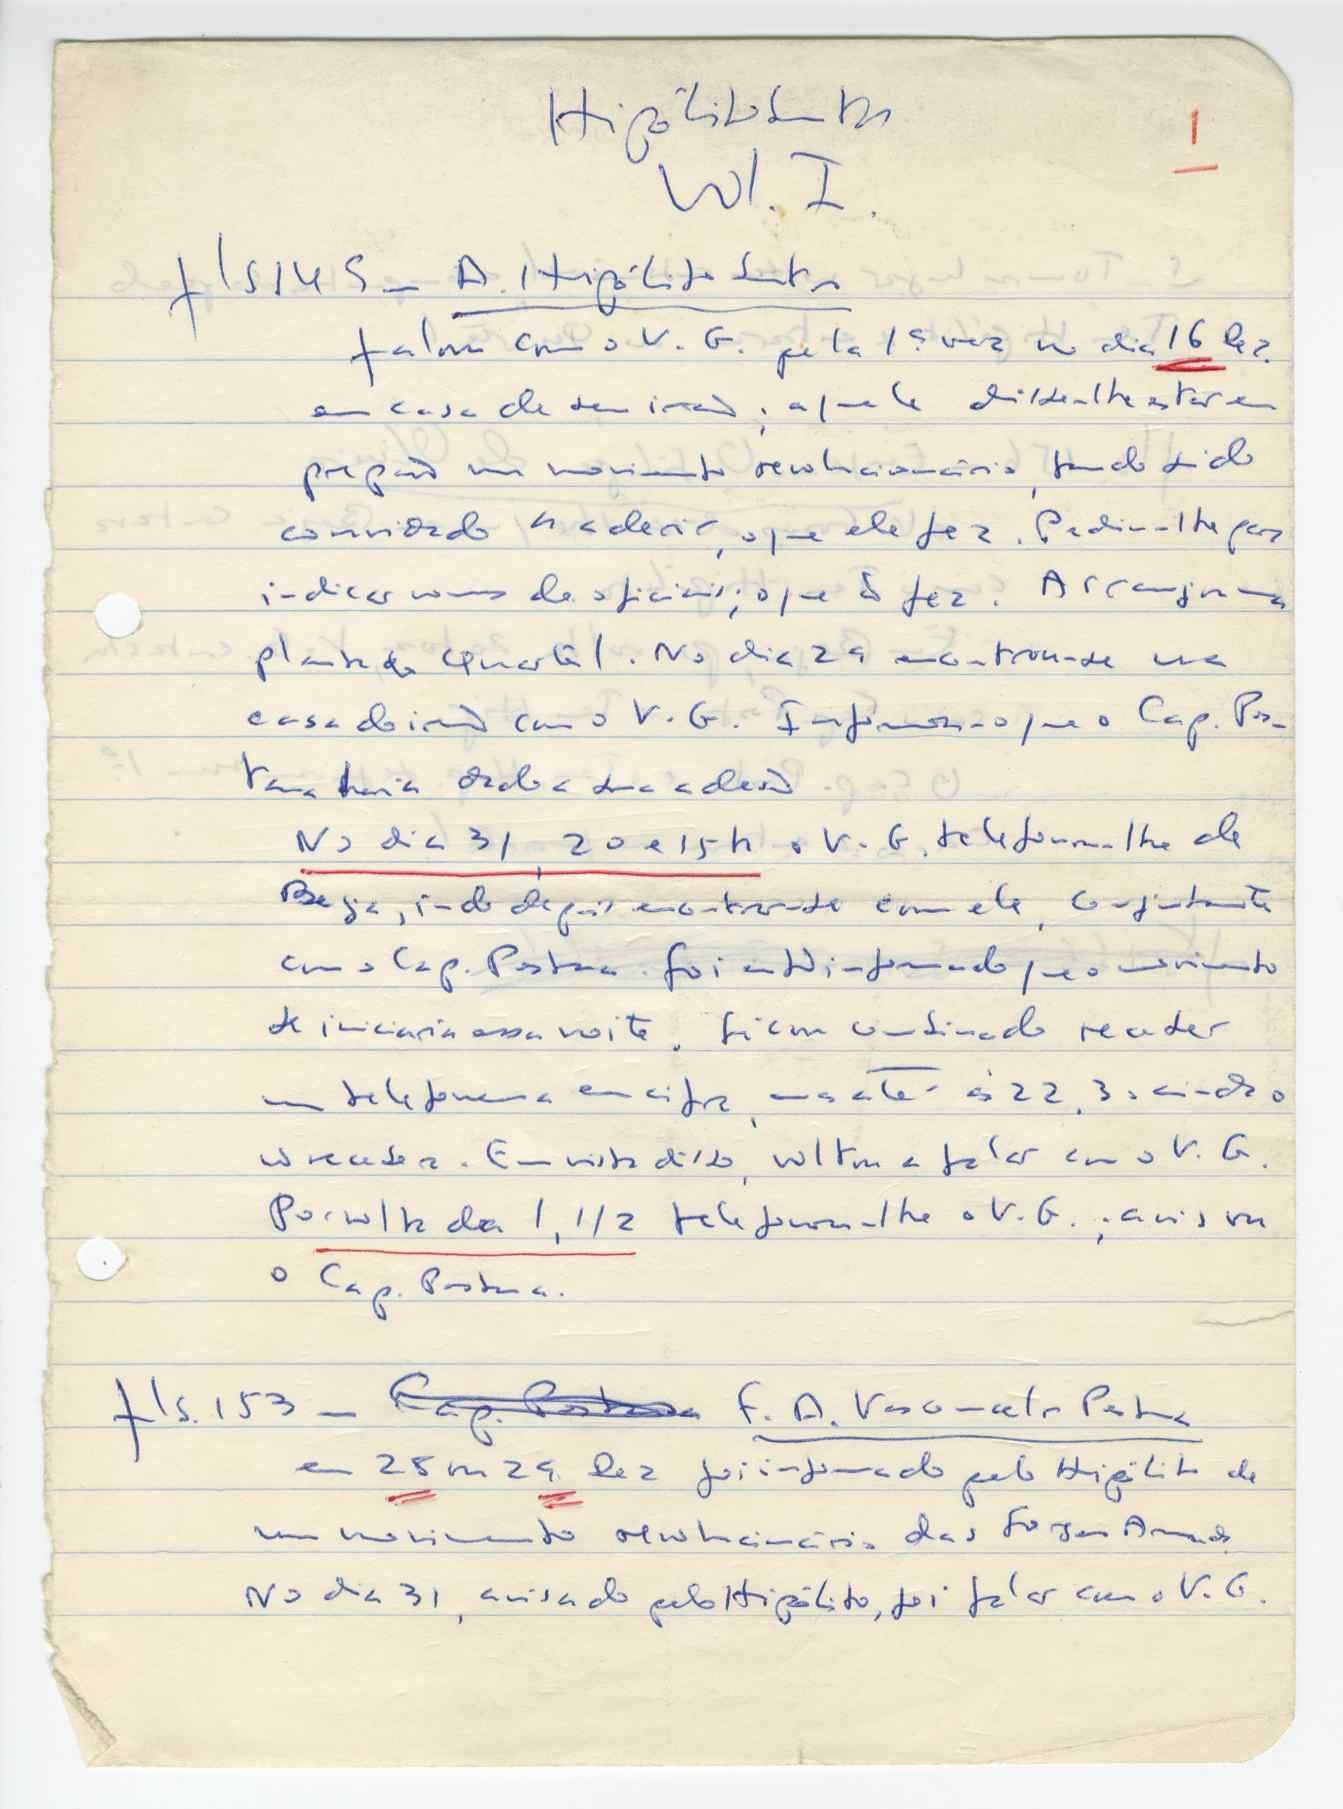 Hipólito Santos
1
Vol. I.
fls 145 - A. Hipólito Santos
falou com o V. G. pela 1ª vez no dia 16 Dez.
em casa de seu irmão; aquele disse-lhe estar em
prepão um movimento revolucionário, tendo sido
convidado a aderir, o que ele fez. Pediu-lhe para
indicar nomes de oficiais, o que ñ fez. Arranjou uma
planta do Quartel. No dia 29 encontrou-se na
casa do irmão com o V. G. Informou-o que o Cap. Pes-
tana havia dado a sua adesão
No dia 31, 20 e 15h o V. G. telefonou-lhe de
Beja, indo depois encontrar-se com ele, conjuntamente
com o Cap. Pestana. Foi então informado que o movimento
se iniciaria essa noite. Ficou combinado receber
um telefonema em cifra, mas até às 22,30 ainda o
ñ recebera. Em vista disso, voltou a falar com o V. G.
Por volta da 1,1/2 telefonou-lhe o V. G.; avisou
o Cap. Pestana.
fls. 153 - Cap. Pestana F. A. Vasconcelos Pestana
em 28 ou 29 Dez foi informado pelo Hipólito de
um movimento revolucionário das Forças Armadas.
No dia 31, avisado pelo Hipólito, foi falar com o V. G.